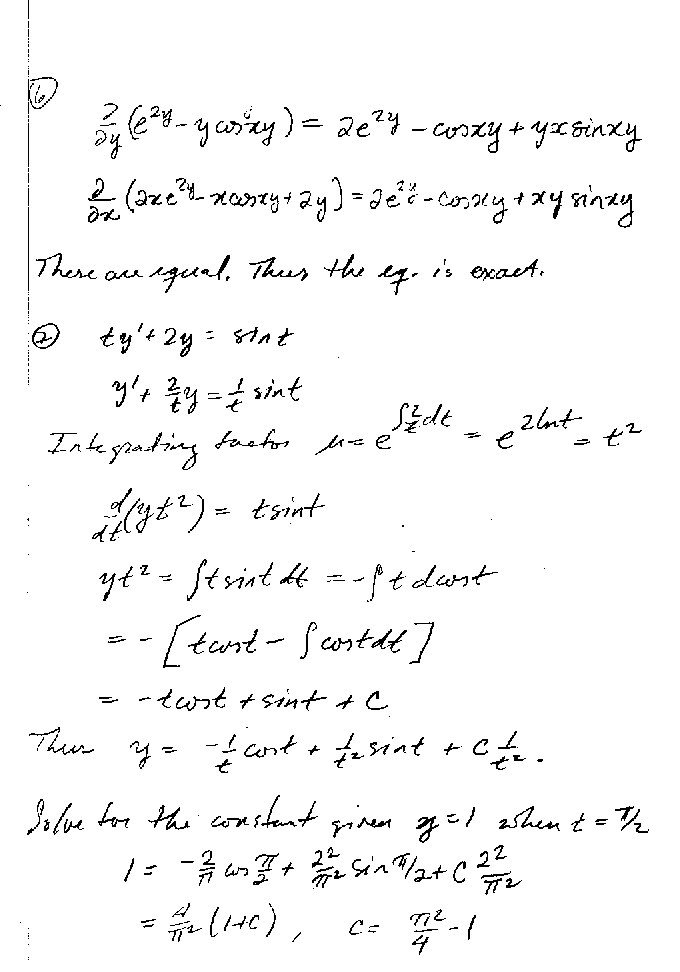 ⑥
∂/∂y (e^{2y} - y cos xy) = 2e^{2y} - cos xy + yx sin xy
∂/∂x (2xe^{2y} - x cos xy + 2y) = 2e^{2y} - cos xy + xy sin xy
These are equal. Thus the eq. is exact.
② ty' + 2y = sin t
y' + 2/t y = 1/t sin t
Integrating factor μ = e^{∫ 2/t dt} = e^{2 ln t} = t^2
d/dt (yt^2) = t sin t
yt^2 = ∫ t sin t dt = -∫ t d cos t
= -[t cos t - ∫ cos t dt]
= -t cos t + sin t + C
Thus y = -1/t cos t + 1/t^2 sin t + C 1/t^2.
Solve for the constant given y = 1 when t = π/2
1 = -2/π cos π/2 + 2^2/π^2 sin π/2 + C 2^2/π^2
= 4/π^2 (1+C), C = π^2/4 - 1